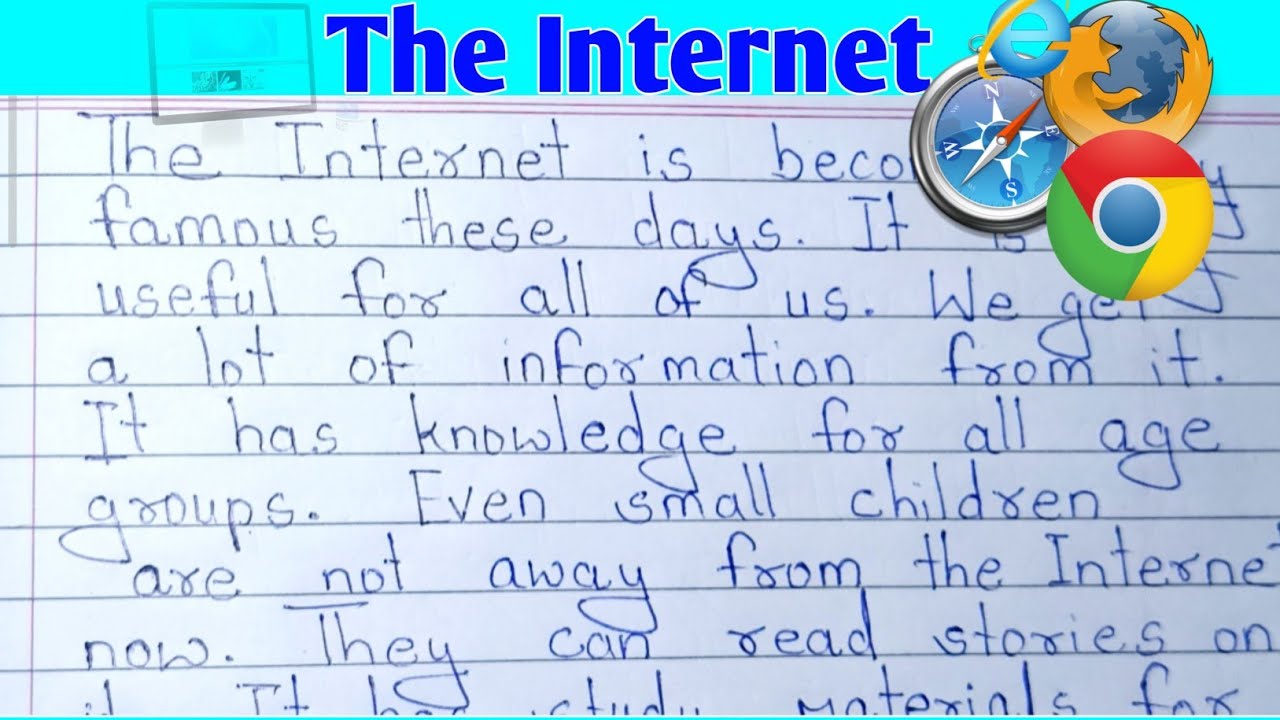 The Internet
The Internet is
famous these days. It is
useful for all of us. We get
a lot of information from it.
It has knowledge for all age
groups. Even small children
are not away from the Internet
now. They can read stories on
it. It has study materials for